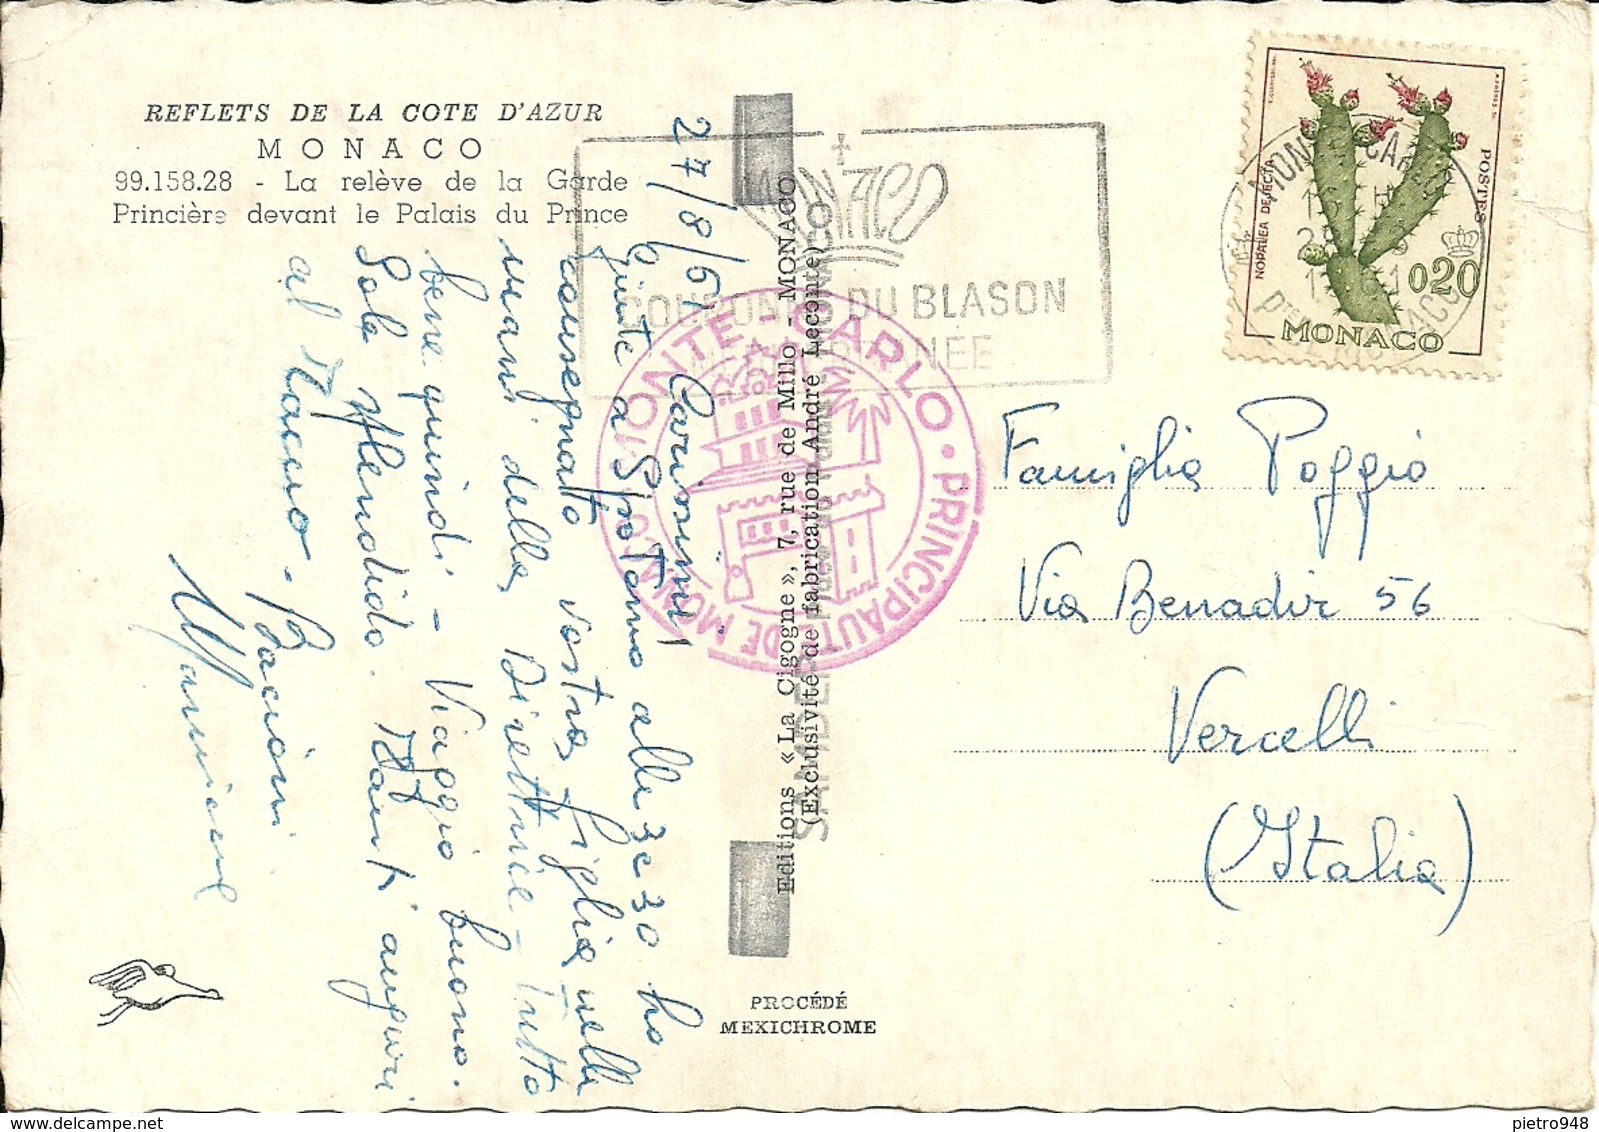 REFLETS DE LA COTE D'AZUR
MONACO
99.158.28 - La relève de la Garde
Princière devant le Palais du Prince
27/8/61
Carissimi
Giunte a Spotorno alle 3 e 30 ho
consegnato vostra figlia nelle
mani della Direttrice - Tutto
bene quindi - Viaggio buono.
Sole splendido. Tanti auguri
al Marco - Bacioni
Editions « La Cigogne », 7, rue de Millo - MONACO
(Exclusivité de fabrication André Leconte)
PROCÉDÉ
MEXICHROME
MONACO
COURONNE DU BLASON
MONTE-CARLO • PRINCIPAUTÉ DE MONACO
MONTE CARLO
NOPALEA DEJECTA
POSTES
0,20
MONACO
Famiglia Poggio
Via Benadir 56
Vercelli
(Italia)
pietro948